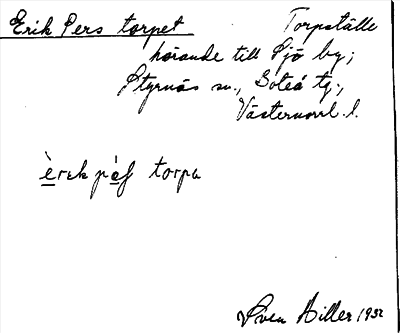 Erik Pers torpet Torpställe
hörande till Sjö by;
Styrnäs sn., Boteå tg.,
Västernorrl. l.
èrɛk pàʃ torpa
Sven Hiller 1932